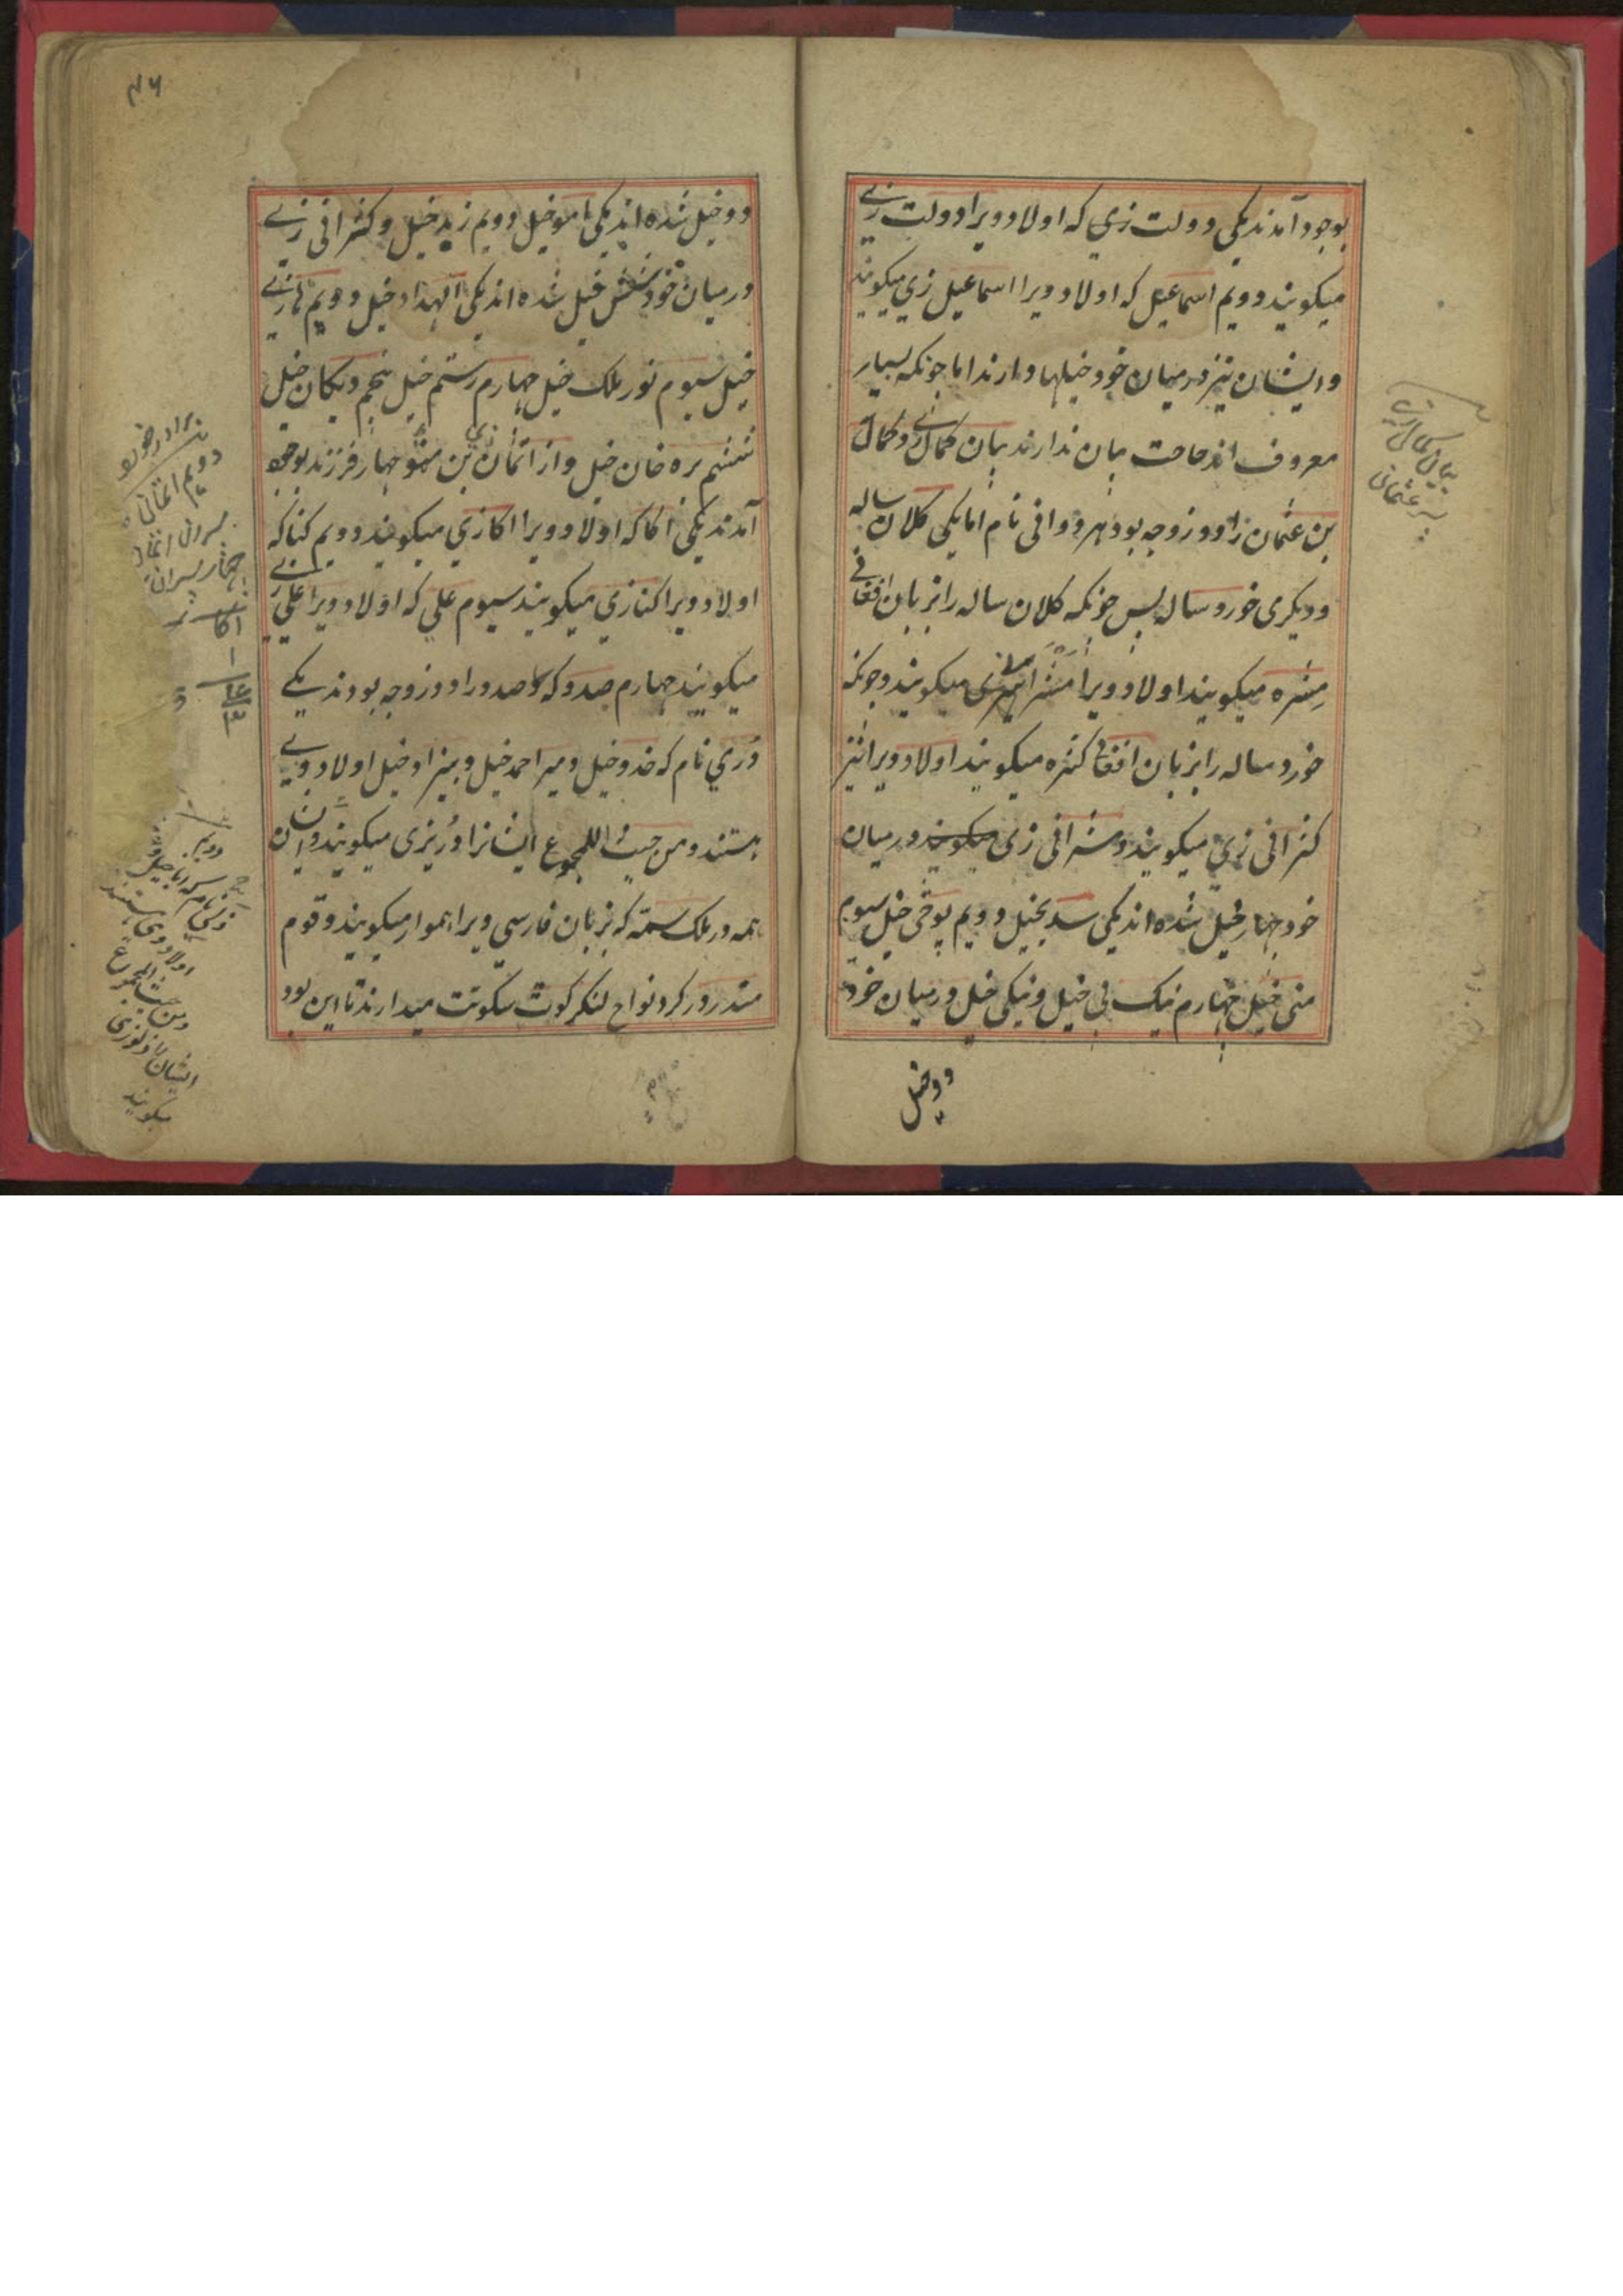 بوجود آمدند یکی دولت زی که اولاد ویرا دولت زے
میکویند دویم اسماعیل که اولاد ویرا اسماعیل زی میکویند
و ایشان نیز در میان خود خیلها دارند اما چونکه بسیار
معروف اند حاجت بیان ندارند بیان کمال زے و کمال
بن عثمان را دو زوجه بود هر دو وافی نام اما یکی کلان ساله
و دیکری خورد ساله پس چونکه کلان ساله را بزبان افغانے
مشره میکویند اولاد ویرا میکویند و چونکه
خورد ساله را بزبان افغانی کشره میکویند اولاد ویرا نیز
کشرافی زی میکویند و مشرافی زی میکویند در میان
خود چهار خیل شده اند یکی خیل دویم خیل سیوم
منی خیل چهارم نیک بی خیل و نیکی خیل در میان خود
دو خیل
بیان کمال زے
پسر عثمان
۴۶
دو خیل شده اند یکی باموخیل دویم زید خیل و کشرافی زے
در میان خود شش خیل شده اند یکی الهداد خیل دویم
خیل سیوم نور ملک خیل چهارم رستم خیل پنجم خیل
ششم بره خان خیل و از اتمان بن منو چهار فرزند بوجود
آمدند یکی اکا که اولاد ویرا اکازی میکویند دویم کنا که
اولاد ویرا کنازی میکویند سیوم علی که اولاد ویرا علی زے
میکویند چهارم صدو که صدو را دو زوجه بودند یکے
دُرّی نام که خدوخیل و میر احمد خیل و بهزاد خیل اولاد ویے
هستند و من حیث المجموع ایشانرا دُریزی میکویند و آن
همه در ملک سمه که بزبان فارسی ویرا هموار میکویند و قوم
مندر در کرد نواح لنکرکوت سکونت میدارند تا این بود
برادر خورد
دویم اتمان
پسران اتمان
چهار پسران
اکا
دویم
نام که
اولاد وی هستند
و من حیث المجموع
ایشان را
میکویند